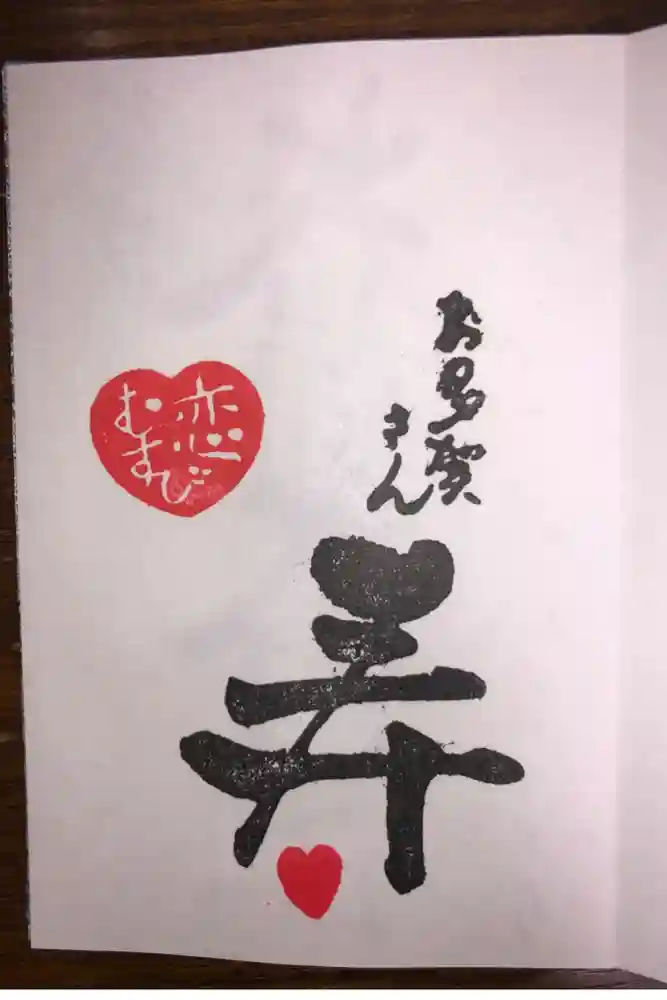 お多賀
さん
寿
恋
むすび